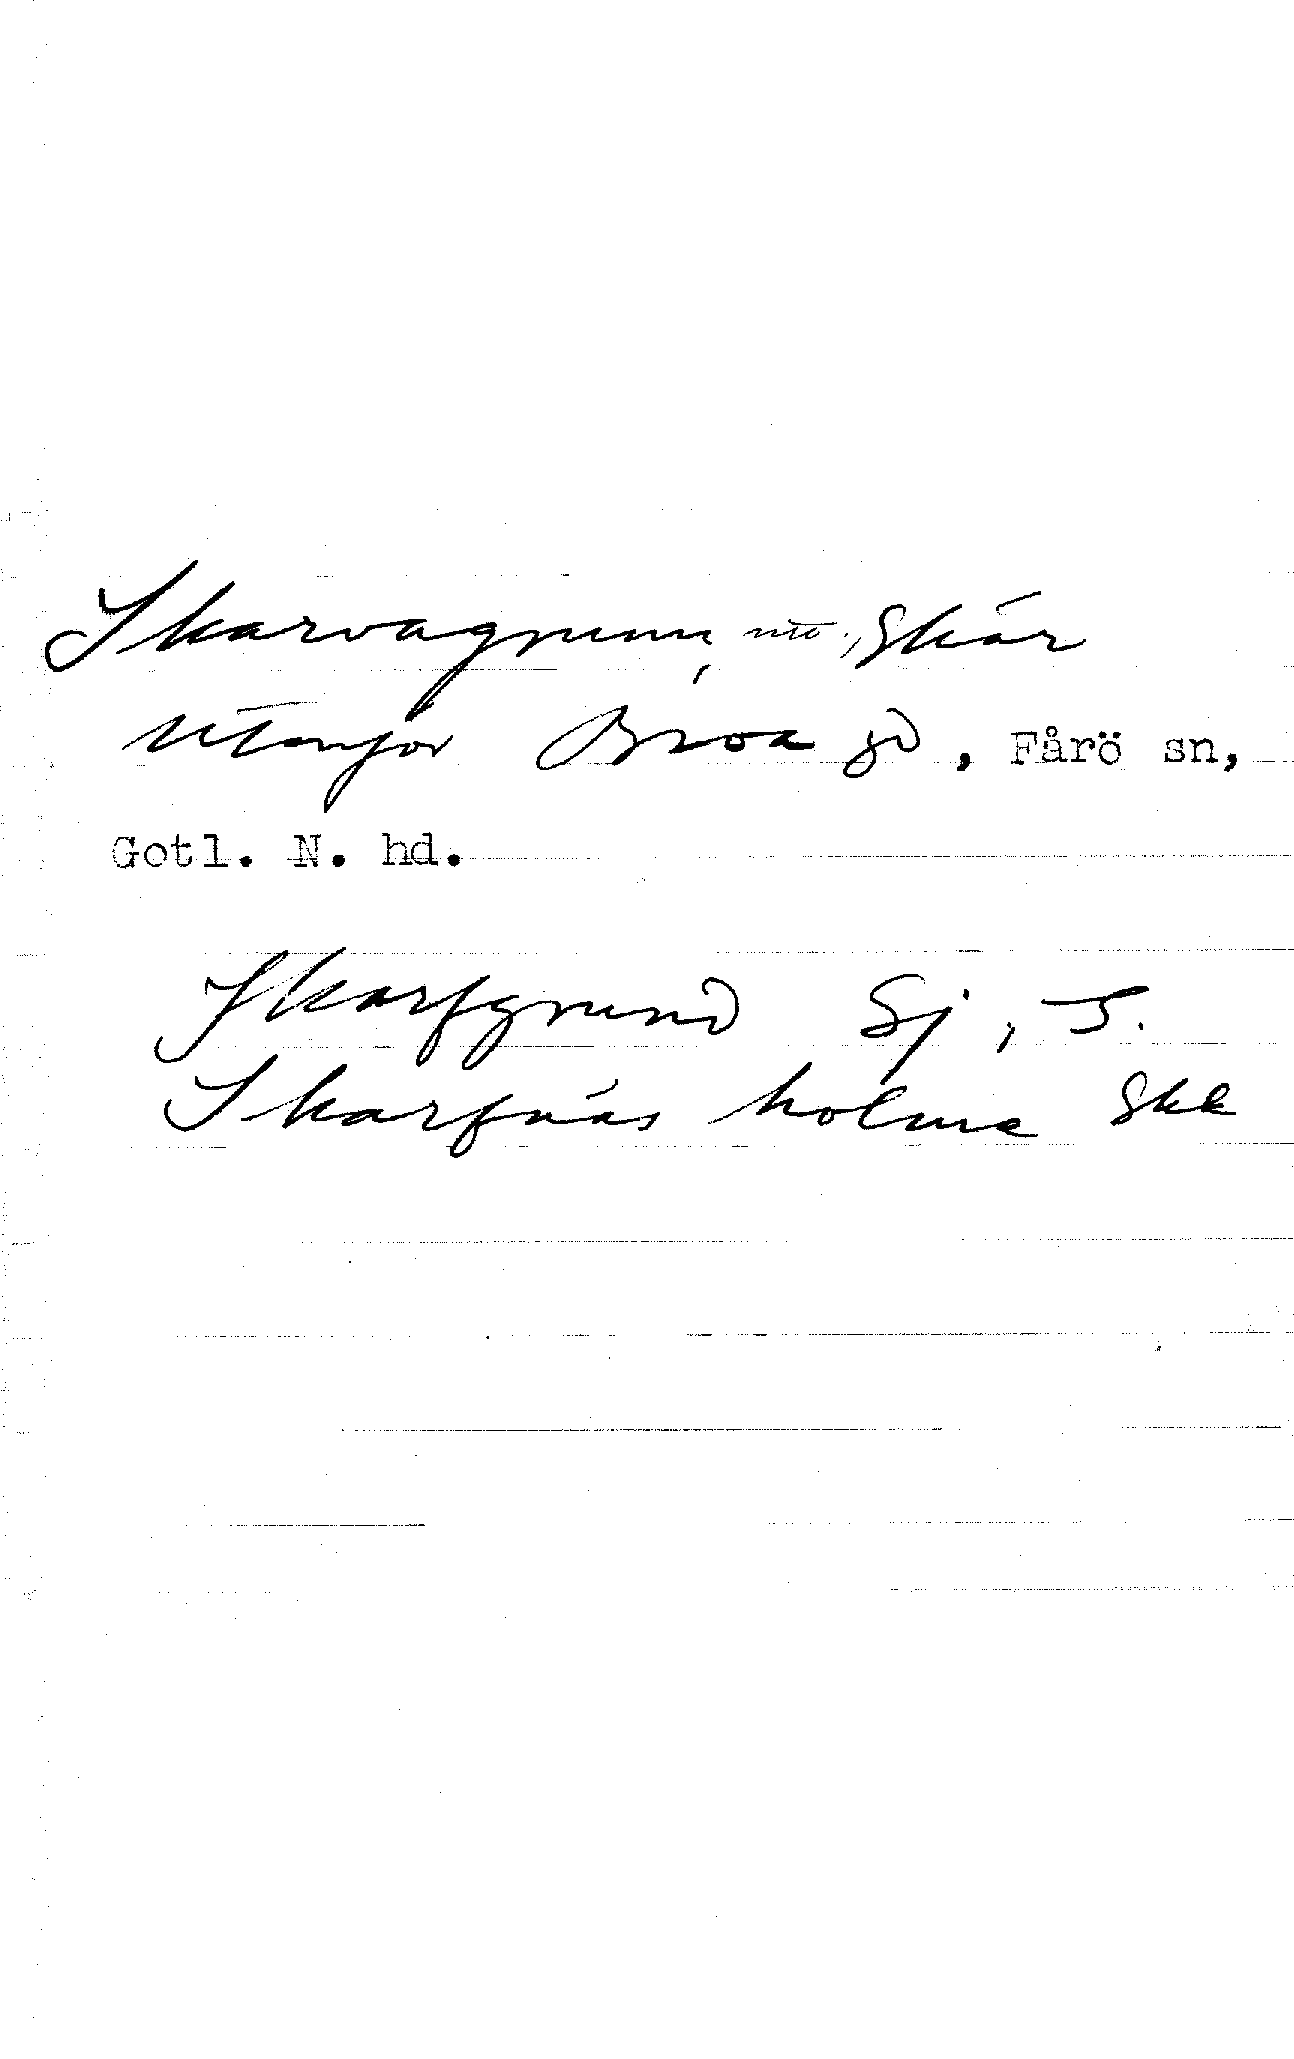 Skarvagrunn, nto., Skär
utanför Broa gd, Fårö sn,
Gotl. N. hd.
Skarfgrund Sj, S.
Skarfnäs holme Skk